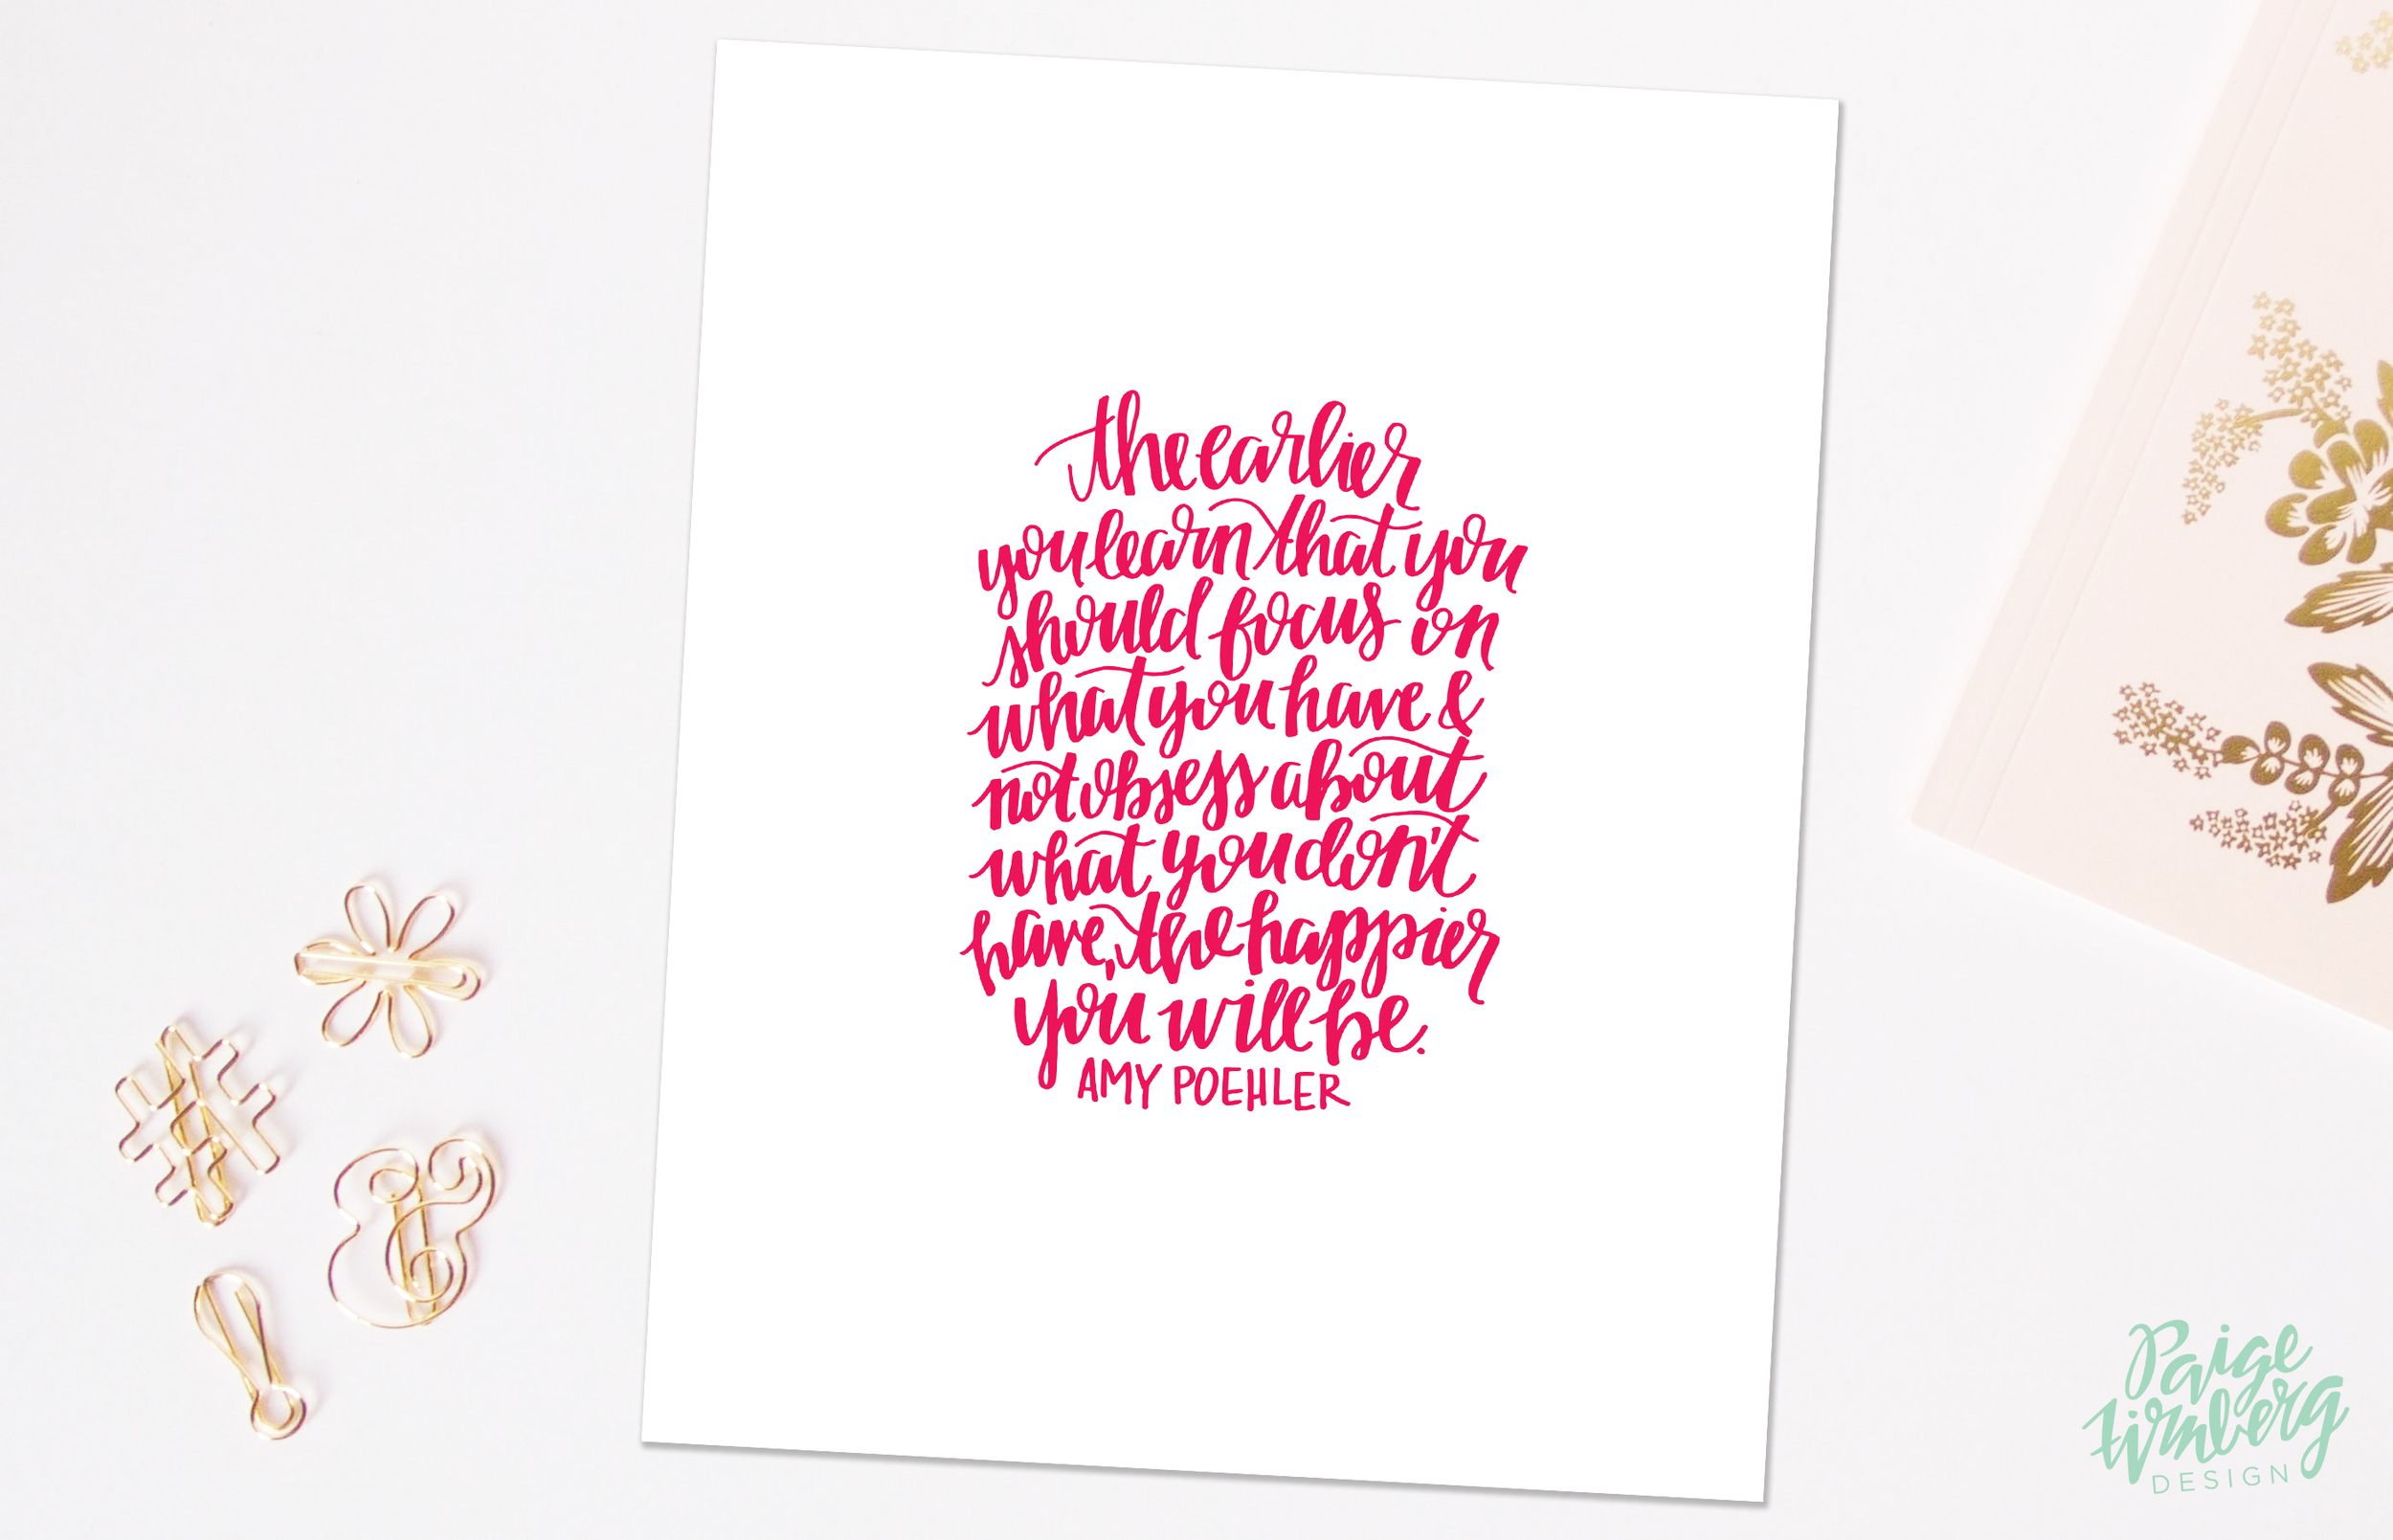 the earlier
you learn that you
should focus on
what you have &
not obsess about
what you don't
have, the happier
you will be.
AMY POEHLER
Paige
Firmberg
DESIGN